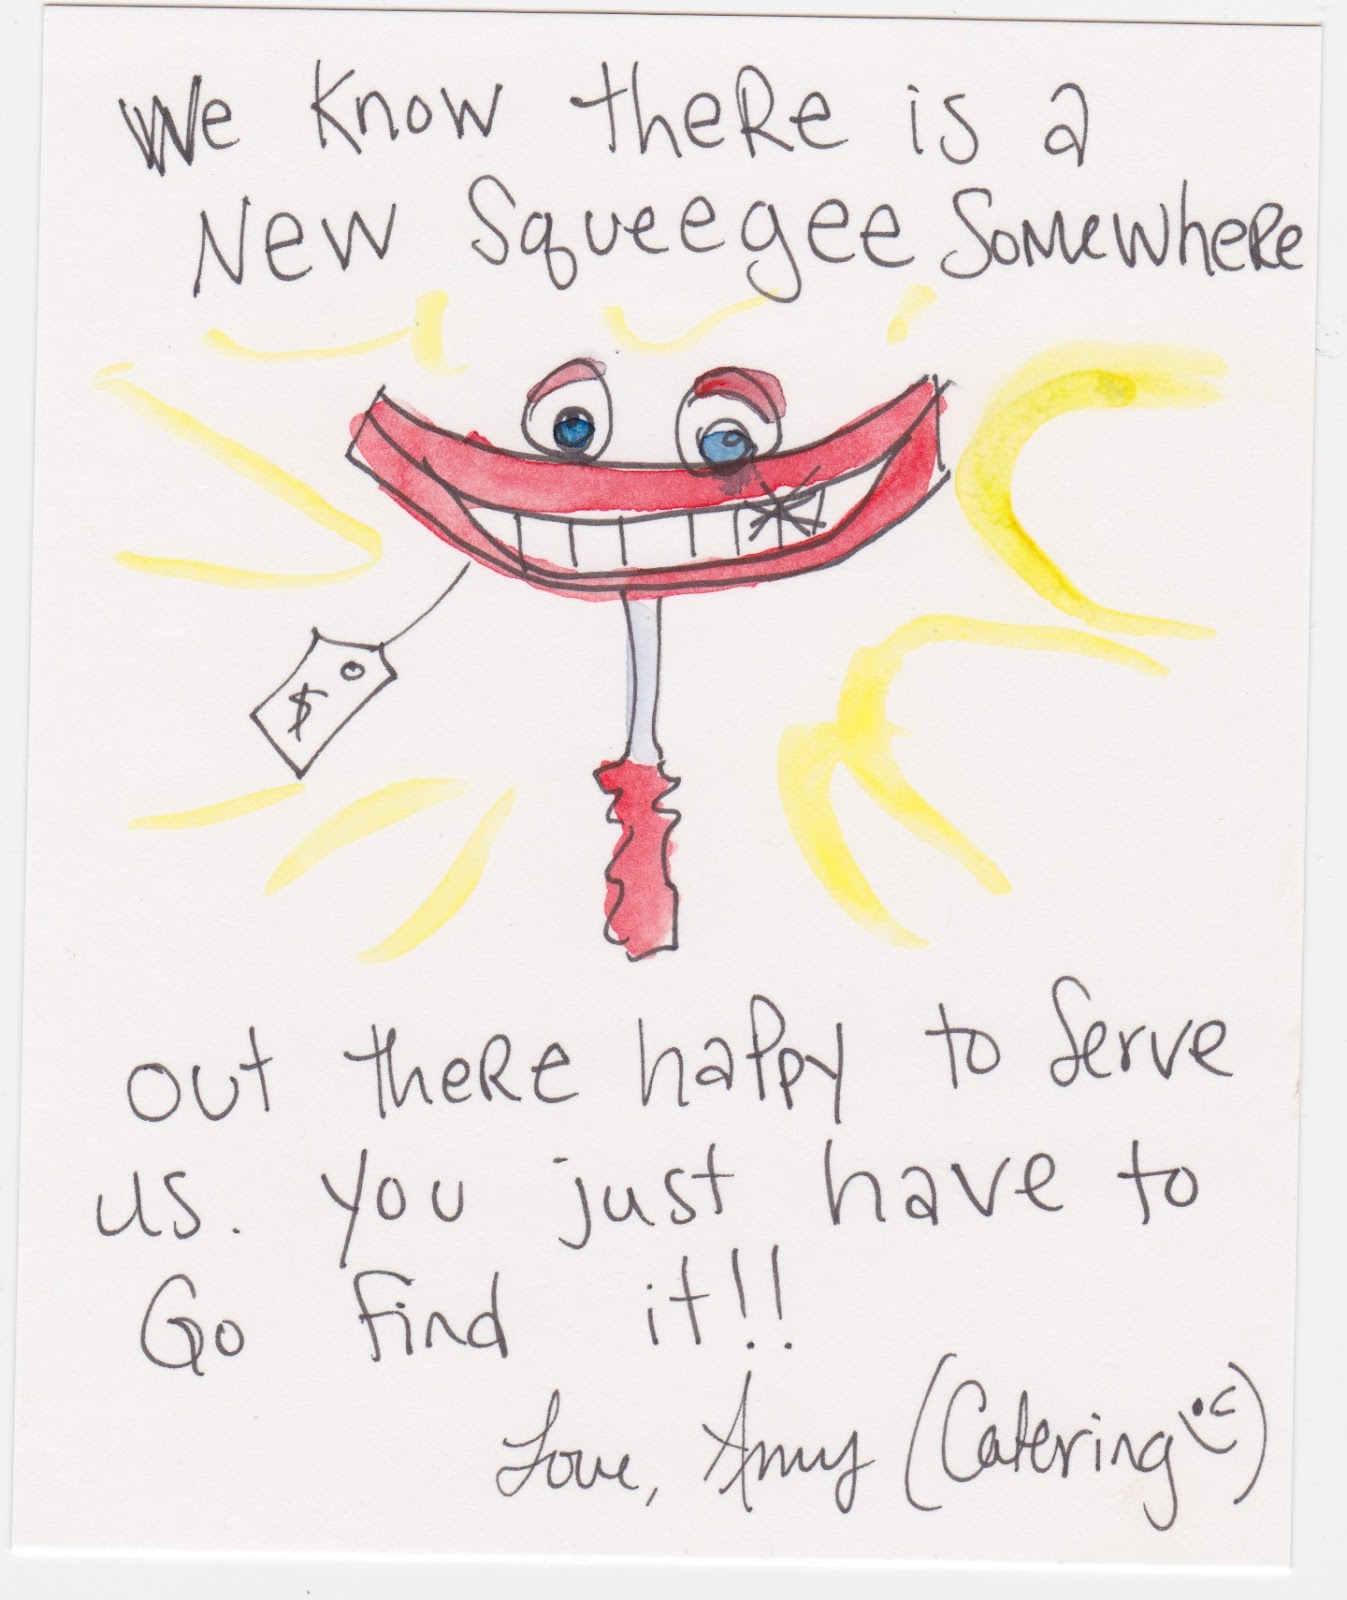 We know theRe is a
New Squeegee SomewheRe
$
out theRe happy to Serve
us. you just have to
Go find it!!
Love, Amy (Catering)